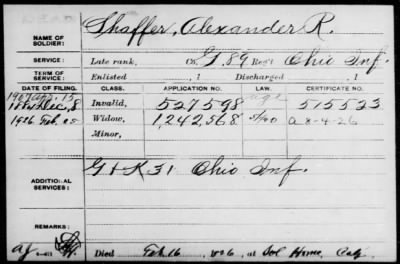 DEAD
NAME OF SOLDIER: Shaffer, Alexander R.
SERVICE: Late rank, Co. G, 89 Reg't Ohio Inf.
TERM OF SERVICE: Enlisted , 1 Discharged , 1
DATE OF FILING. CLASS. APPLICATION NO. LAW. CERTIFICATE NO.
Dec. 8 Invalid, 527598 age 515523
1926 Feb. Widow, 1,242,568 a 8-4-26
Minor,
ADDITIONAL SERVICES: G & K 31 Ohio Inf.
REMARKS:
Died Feb. 16, 1926, at Sol Home, Calif.